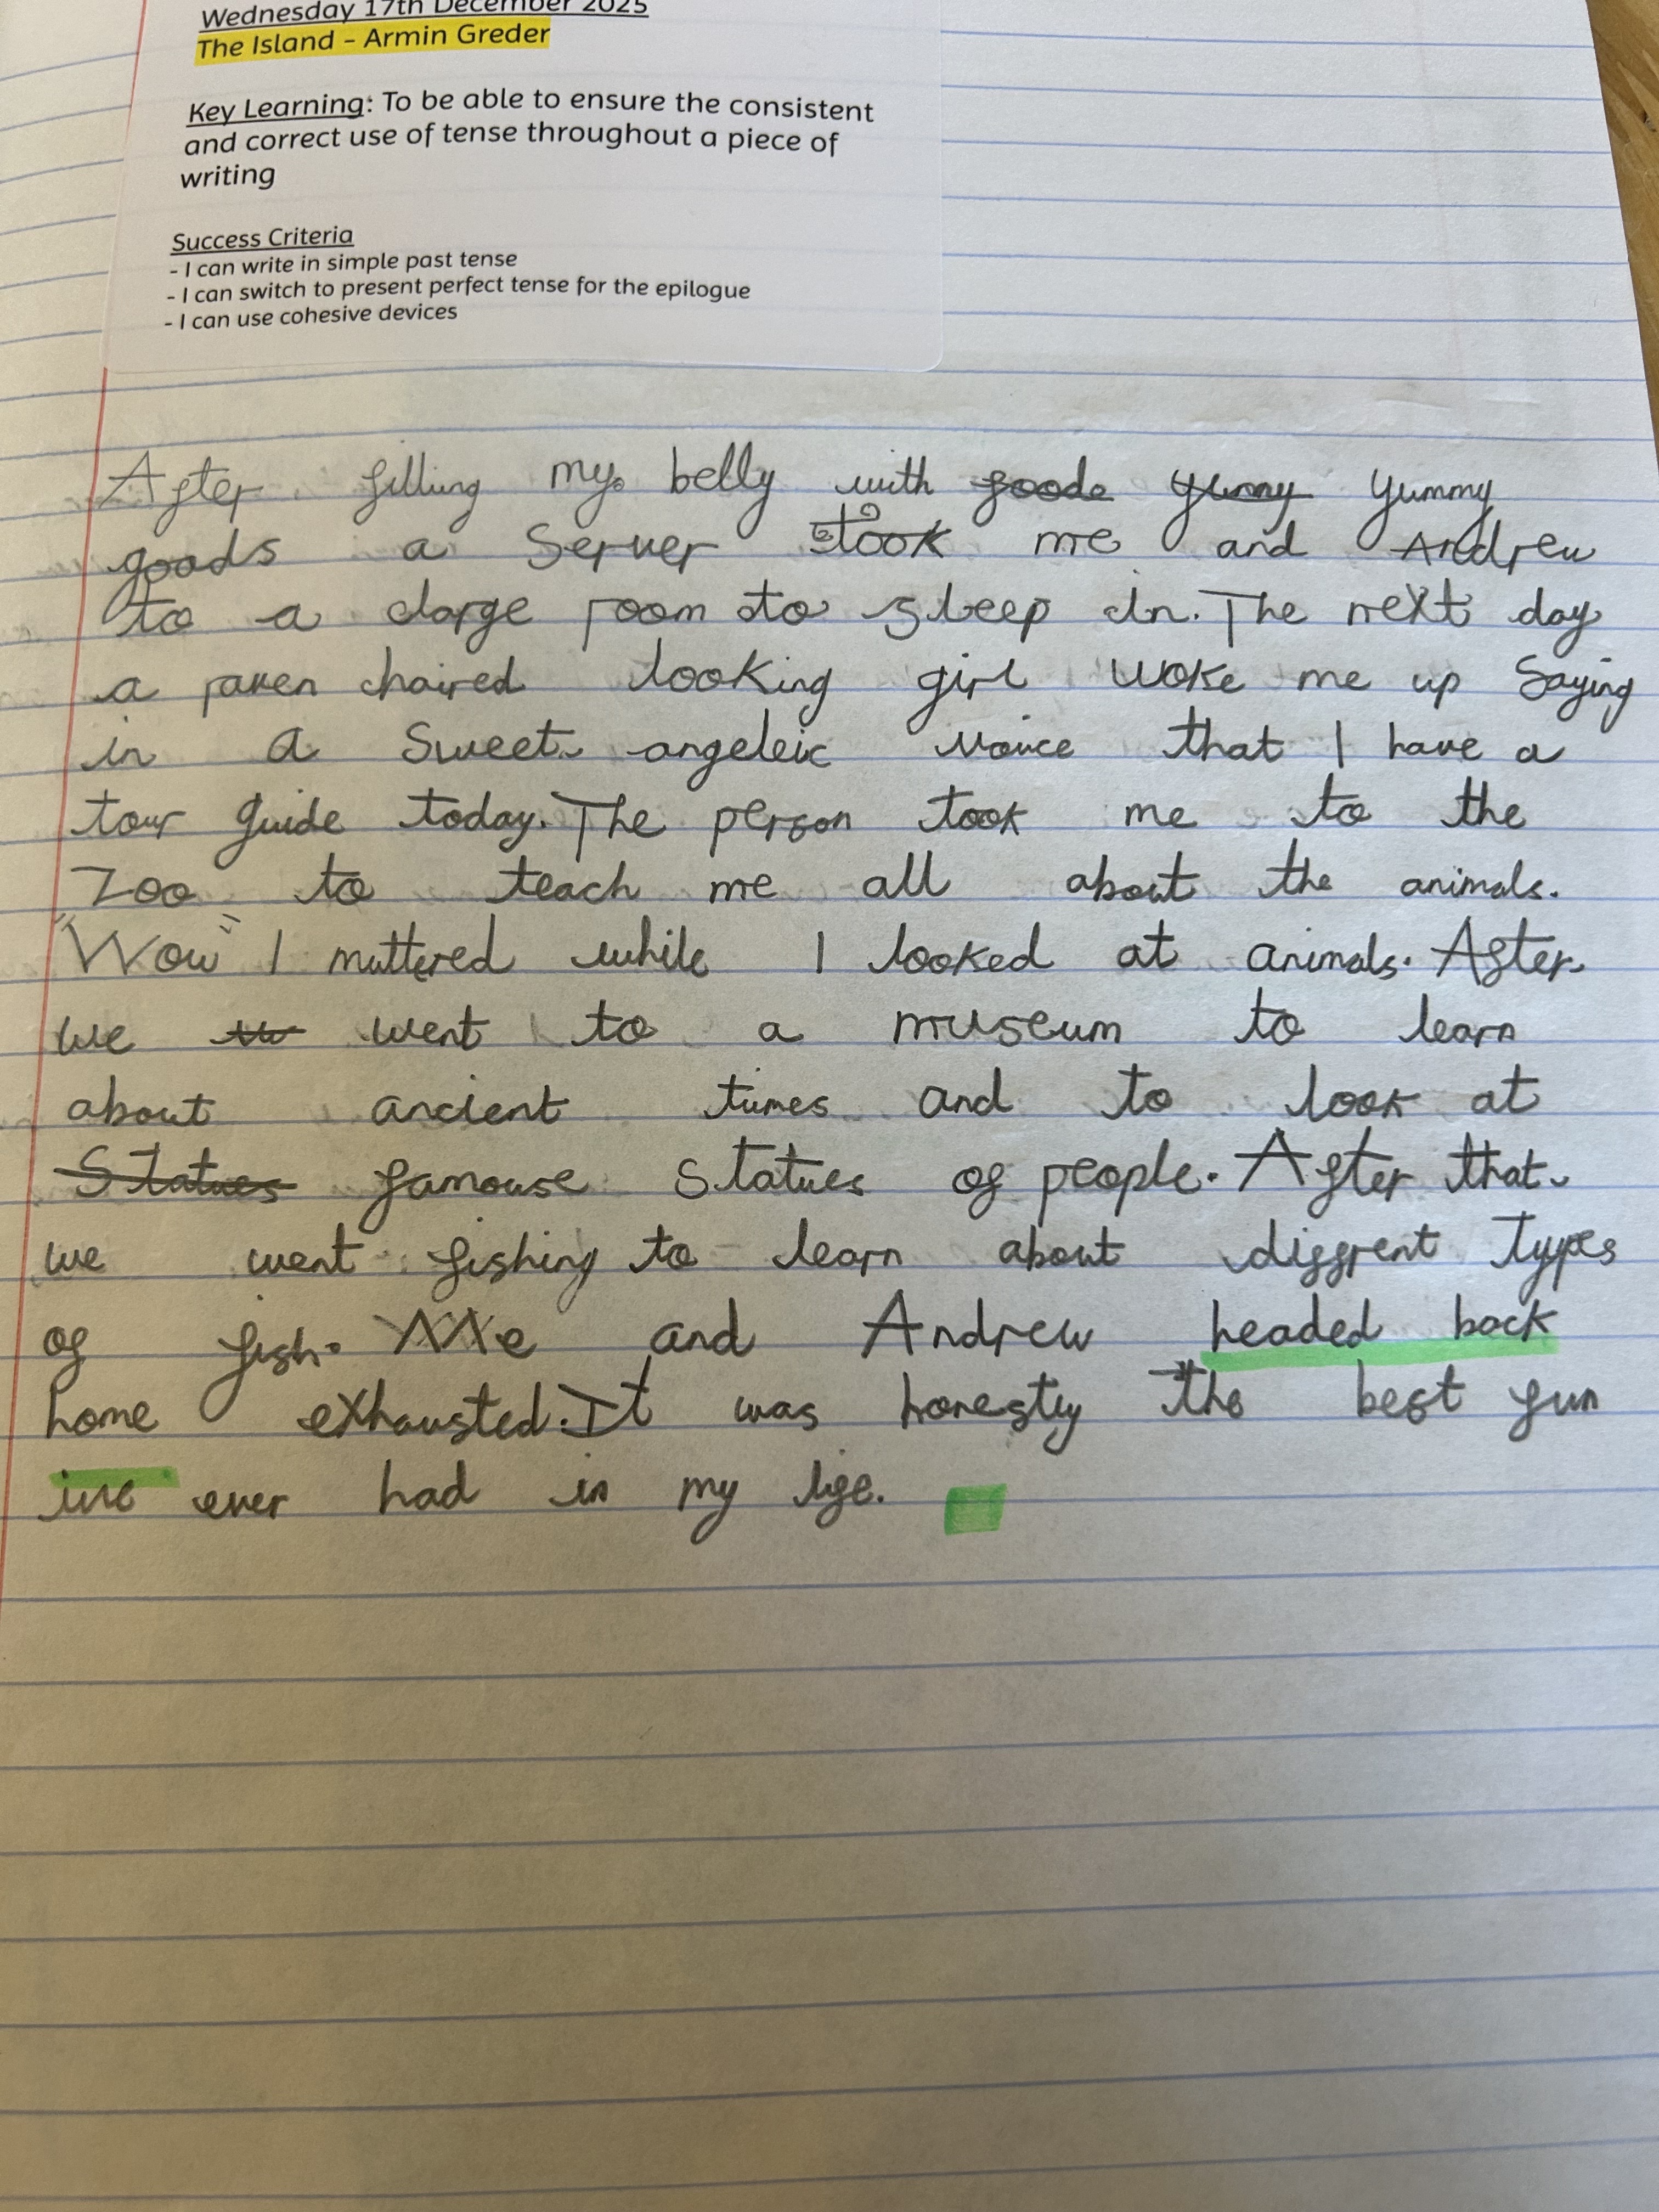 Wednesday 17th December 2025
The Island - Armin Greder
Key Learning: To be able to ensure the consistent
and correct use of tense throughout a piece of
writing
Success Criteria
- I can write in simple past tense
- I can switch to present perfect tense for the epilogue
- I can use cohesive devices
After filling my belly with foode yumy yummy
foods a Server took me and Andrew
to a large room to sleep in. The next day
a raven chaired looking girl woke me up Saying
in a sweet angeleic voince that I have a
tour guide today. The person took me to the
Zoo to teach me all about the animals.
"Wow" I muttered while I looked at animals. After
we went to a museum to learn
about ancient times and to look at
Statues famouse statues of people. After that
we went fishing to learn about diffrent types
of fish. Me and Andrew headed back
home exhausted. It was honestly the best fun
ive ever had in my life.